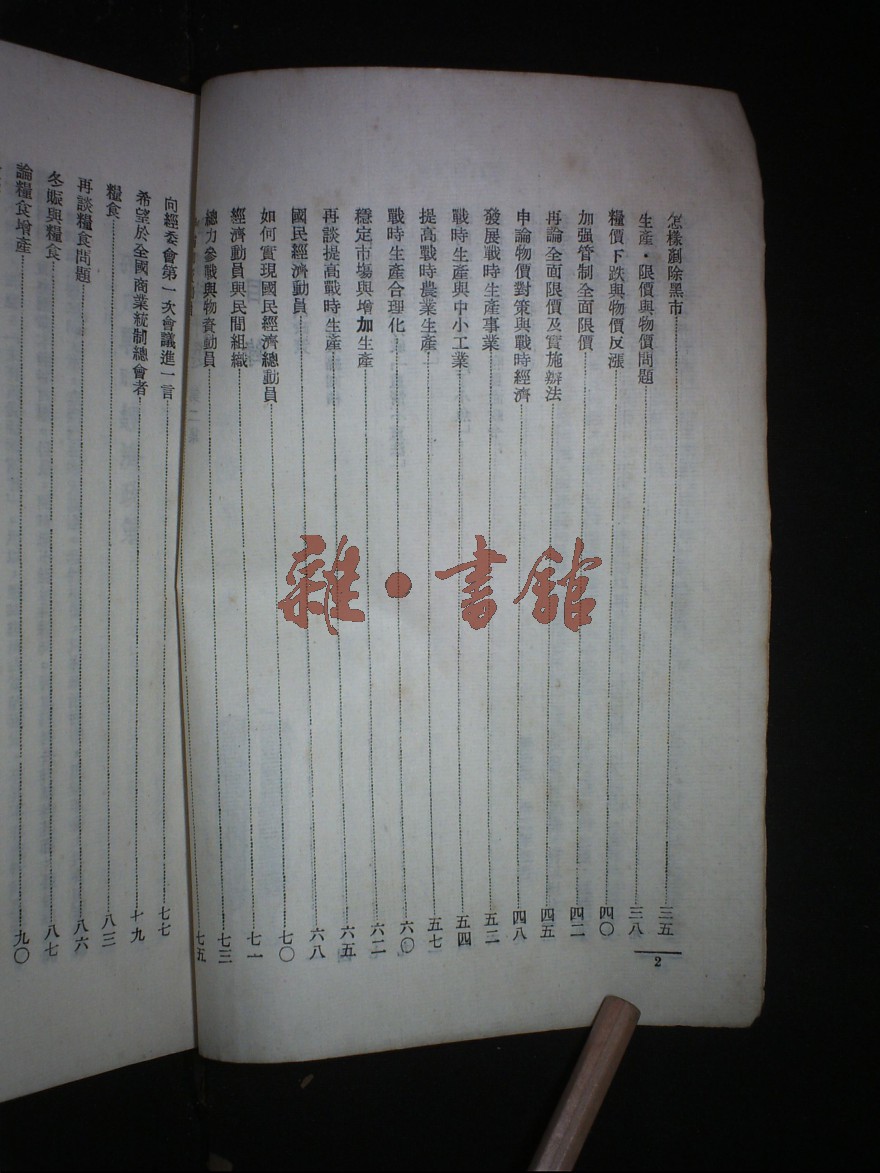 怎樣剷除黑市三五
生產·限價與物價問題三八
糧價下跌與物價反漲四〇
加强管制全面限價四二
再論全面限價及實施辦法四五
申論物價對策與戰時經濟四八
發展戰時生產事業五二
戰時生產與中小工業五四
提高戰時農業生產五七
戰時生產合理化六〇
穩定市場與增加生產六二
再談提高戰時生產六五
國民經濟動員六八
如何實現國民經濟總動員七〇
經濟動員與民間組織七一
總力參戰與物資動員七三
七五
2
向經委會第一次會議進一言七七
希望於全國商業統制總會者十九
糧食八三
再談糧食問題八六
冬賑與糧食八七
論糧食增產九〇
雜·書館